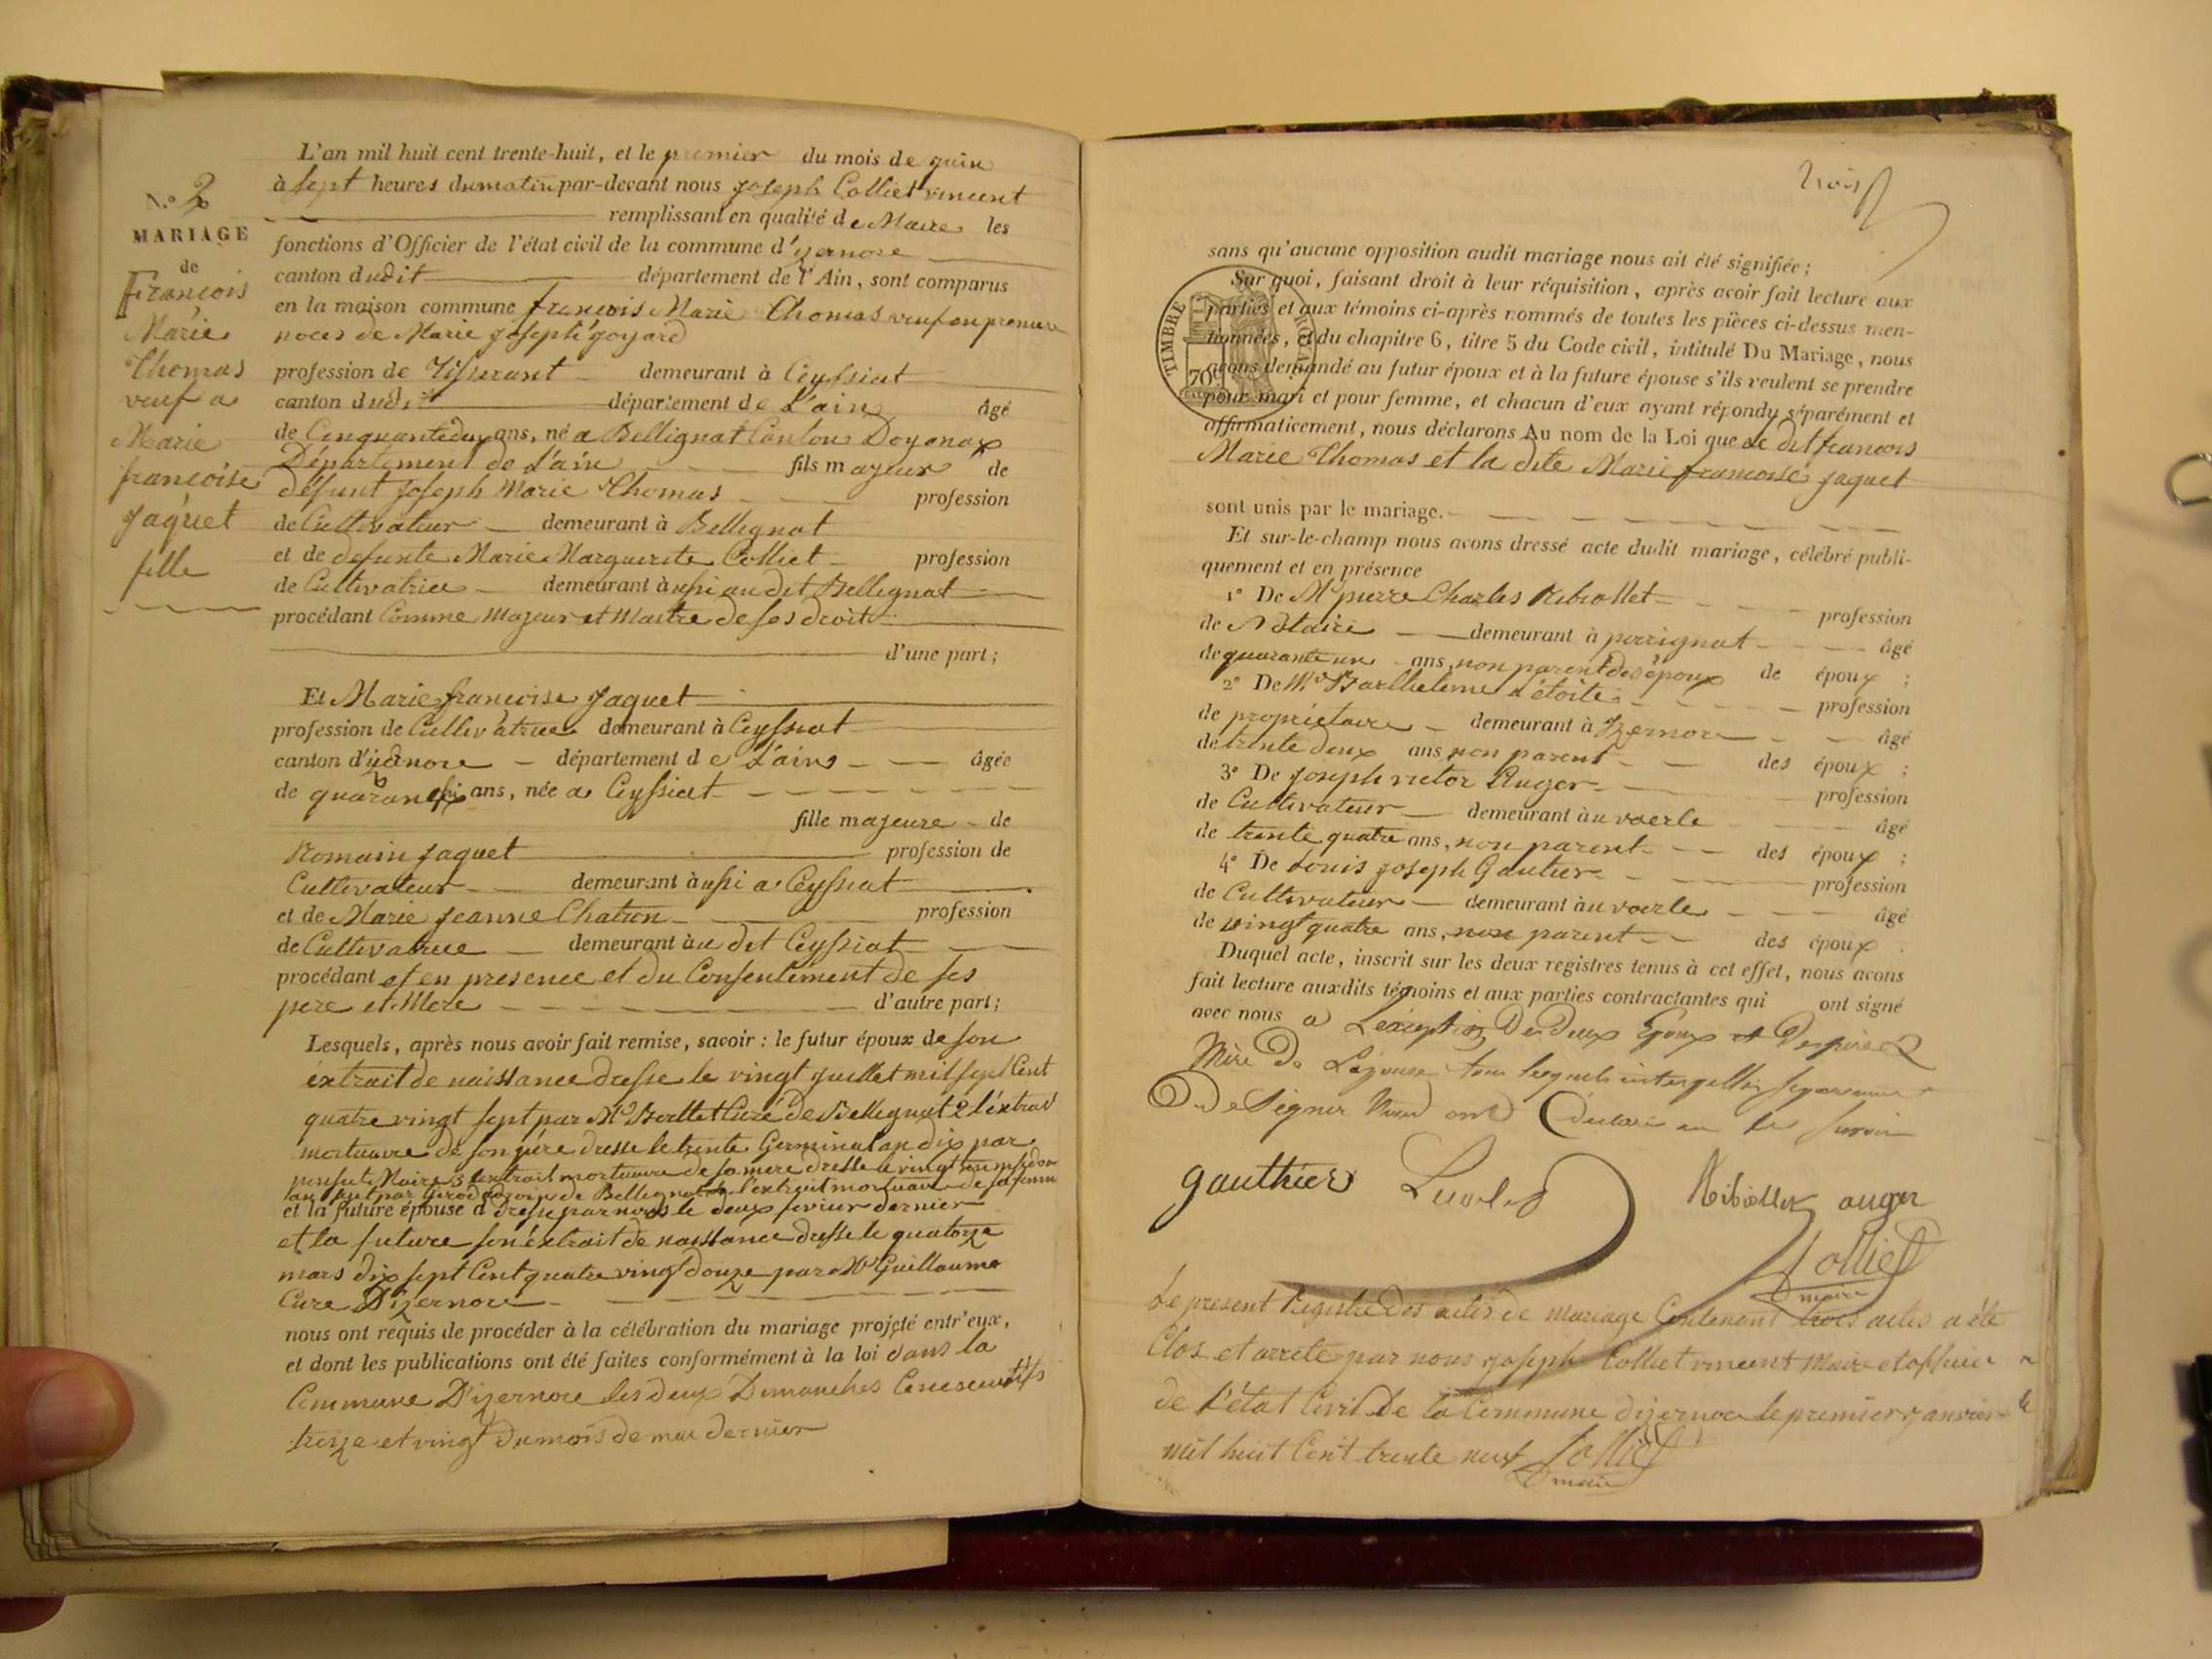 N.o 2
MARIAGE
de
François
Marie
Thomas
veuf a
Marie
françoise
Jaquet
fille
L'an mil huit cent trente-huit, et le premier du mois de juin
à sept heures du matin par-devant nous joseph Colliet vincent
remplissant en qualité de Maire les
fonctions d'Officier de l'état civil de la commune d'yzernore
canton dudit département de l'Ain, sont comparus
en la maison commune françois Marie Thomas veuf en premiere
noces de Marie josephe goyard
profession de Tisserant demeurant à Ceyssiat
canton dudit département de L'ain âgé
de Cinquante ans, né a Bellignat Canton Doyonax
Département de L'ain fils majeur de
défunt joseph Marie Thomas profession
de Cultivateur demeurant à Bellignat
et de defunte Marie Marguerite Colliet profession
de Cultivatrice demeurant àussi au dit Bellignat
procédant Comme Majeur et Maitre de ses droit
d'une part;
Et Marie françoise Jaquet
profession de Cultivatrice demeurant à Ceyssiat
canton d'yzernore département de L'ain âgée
de quarante six ans, née a Ceyssiat
fille majeure de
Romain Jaquet profession de
Cultivateur demeurant àussi a Ceyssiat
et de Marie jeanne Chatron profession
de Cultivatrice demeurant àu dit Ceyssiat
procédant et en presence et du Consentement de ses
pere et Mere d'autre part;
Lesquels, après nous avoir fait remise, savoir: le futur époux de son
extrait de naissance dresse le vingt juillet mil sept Cent
quatre vingt sept par Mr Curé de Bellignat 2 l'éxtrait
mortuaire de son pére dresse le trente Germinal an dix par
Maire 3 lextrait mortuaire de sa mere dresse le vingt
an sept par Girod de Bellignat l'extrait mortuaire de sa femme
et la future épouse d dresse par nous le deux fevrier dernier
et la future son éxtrait de naissance dresse le quatorze
mars dix sept Cent quatre vingt douze par Mr Guillaume
Cure D'izernore
nous ont requis de procéder à la célébration du mariage projeté entr'eux,
et dont les publications ont été faites conformément à la loi dans la
Commune D'izernore les deux Dimanches Consecutifs
treize et vingt du mois de mai dernier
trois
TIMBRE ROYAL
70c
sans qu'aucune opposition audit mariage nous ait été signifiée;
Sur quoi, faisant droit à leur réquisition, après avoir fait lecture aux
parties et aux témoins ci-après nommés de toutes les pièces ci-dessus men-
tionnées, et du chapitre 6, titre 5 du Code civil, intitulé Du Mariage, nous
avons demandé au futur époux et à la future épouse s'ils veulent se prendre
pour mari et pour femme, et chacun d'eux ayant répondu séparément et
affirmativement, nous déclarons Au nom de la Loi que Le dit françois
Marie Thomas et la dite Marie françoise jaquet
sont unis par le mariage.
Et sur-le-champ nous avons dressé acte dudit mariage, célébré publi-
quement et en présence
1° De Mr pierre Charles Ribollet profession
de Notaire demeurant à perrignat âgé
de quarante un ans, non parent des époux de époux;
2° De Mr Barthelemi profession
de propriétaire demeurant à Izernore âgé
de trente deux ans non parent des époux;
3° De joseph victor Auger profession
de Cultivateur demeurant àu voerle âgé
de trente quatre ans, non parent des époux;
4° De Louis joseph Gautier profession
de Cultivateur demeurant àu voerle âgé
de vingt quatre ans, non parent des époux.
Duquel acte, inscrit sur les deux registres tenus à cet effet, nous avons
fait lecture auxdits témoins et aux parties contractantes qui ont signé
avec nous a Léxception Des Deux Epoux et Des pere &
Mère De Lépouse tous lesquels interpellés separement
De Signer Nous ont déclaré ne le savoir
gauthier Ribollet auger
Colliet
maire
Le present Registre des actes de mariage Contenant trois actes a été
Clos et arrete par nous joseph Colliet vincent Maire et officier
de l'état Civil De la Commune dizernore le premier janvier
mil huit Cent trente neuf Colliet
maire